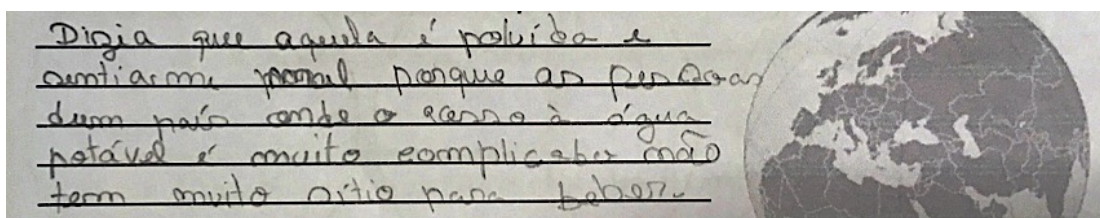 Dizia que aquela é poluída e
sentiarme normal porque as pessoas
dum país onde o acesso à água
potável é muito complicaber não
tem muito sítio para beber.